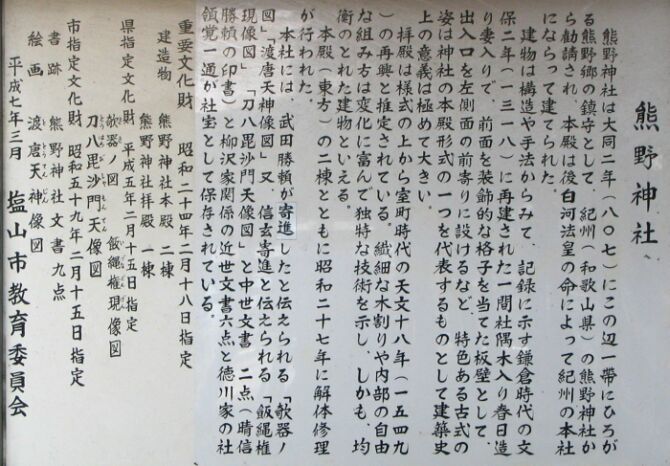 熊野神社
熊野神社は大同二年(八〇七)にこの辺一帯にひろが
る熊野郷の鎮守として、紀州(和歌山県)の熊野神社か
ら勧請され、本殿は後白河法皇の命によって紀州の本社
にならって建てられた。
建物は構造や手法からみて、記録に示す鎌倉時代の文
保二年(一三一八)に再建された一間社隅木入り春日造
り妻入りで、前面を装飾的な格子を当てた板壁として、
出入口を左側面の前寄りに設けるなど、特色ある古式の
姿は神社の本殿形式の一つを代表するものとして建築史
上の意義は極めて大きい。
拝殿は様式の上から室町時代の天文十八年(一五四九
)の再興と推定されている。繊細な木割りや内部の自由
な組み方は変化に富んで独特な技術を示し、しかも、均
衡のとれた建物といえる。
本殿(東方)の二棟とともに昭和二十七年に解体修理
が行われた。
本社には、武田勝頼が寄進したと伝えられる「欹器ノ
図」「渡唐天神像図」又、信玄寄進と伝えられる「飯縄権
現像図」「刀八毘沙門天像図」と中世文書二点(晴信
勝頼の印書)と柳沢家関係の近世文書六点と徳川家の社
領覚一通が社宝として保存されている。
重要文化財 昭和二十四年二月十八日指定
建造物 熊野神社本殿 二棟
熊野神社拝殿 一棟
県指定文化財 平成五年二月十五日指定
欹器ノ図 飯縄権現像図
刀八毘沙門天像図
市指定文化財 昭和五十九年二月十五日指定
書跡 熊野神社文書九点
絵画 渡唐天神像図
平成七年三月 塩山市教育委員会